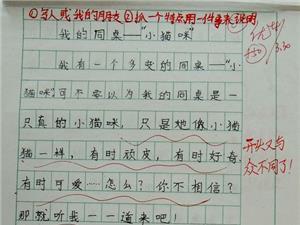 ①写人或我的朋友②抓一个特点用一件事来说明
我的同桌——“小猫咪”
我有一个多变的同桌——“小
猫咪”可不要以为我的同桌是一
只真的小猫咪，只是她像小猫
猫一样，有时顽皮，有时好奇
有时可爱……怎么？你不相信？
那就听我一一道来吧！
优
3.30
开头又与
众不同了！